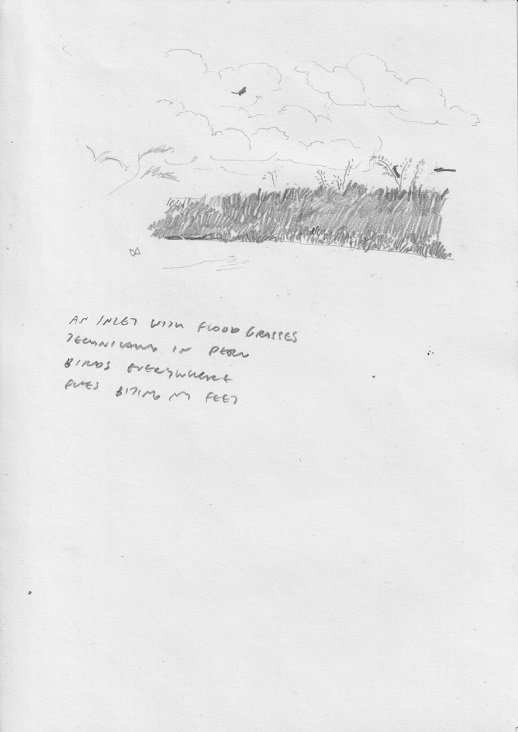 AN INLET WITH FLOOD GRASSES
TECHNICALLY IN PERU
BIRDS EVERYWHERE
FLIES BITING MY FEET